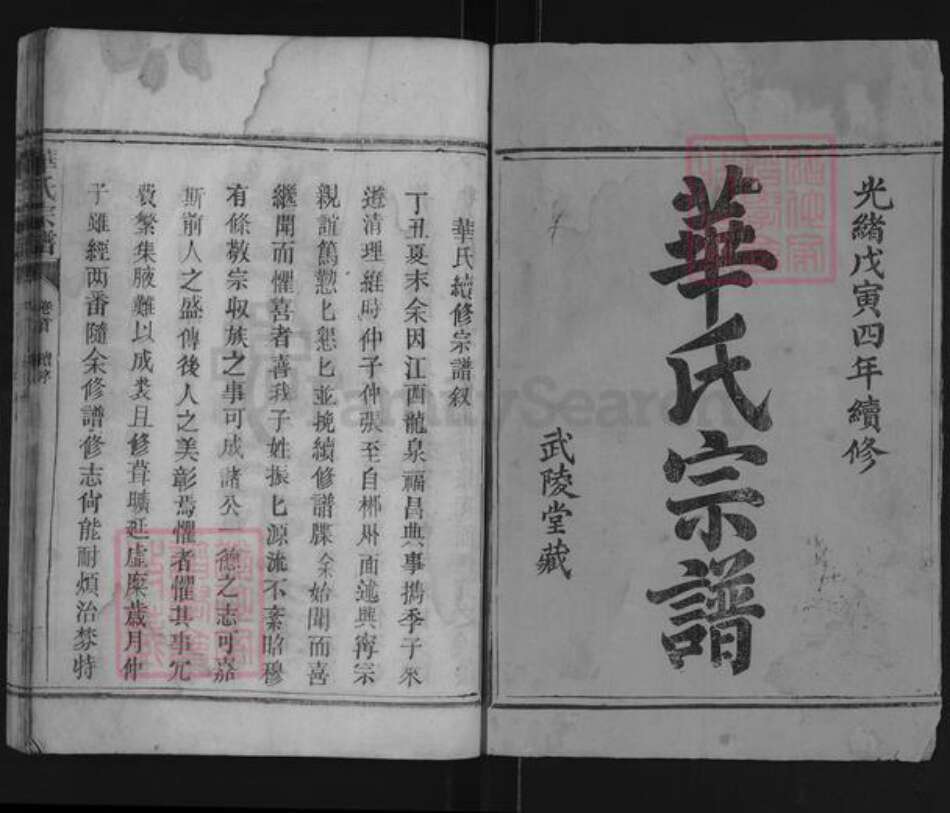 光緒戊寅四年續修
華氏宗譜
武陵堂藏
華氏續修宗譜叙
丁丑夏末余因江西龍泉福昌典事攜季子來
遊清理維時仲子仲張至自郴州面述興寧宗
親誼篤懃匕懇匕並挽續修譜牒余始聞而喜
繼聞而懼喜者喜我子姓振匕源流不紊昭穆
有條敬宗收族之事可成諸公一德之志可嘉
斯前人之盛傳後人之美彰焉懼者懼其事冗
費繁集腋難以成裘且修葺曠延虛糜歲月仲
子雖經兩番隨余修譜修志尚能耐煩治棼特
華氏宗譜
卷首
FamilySearch